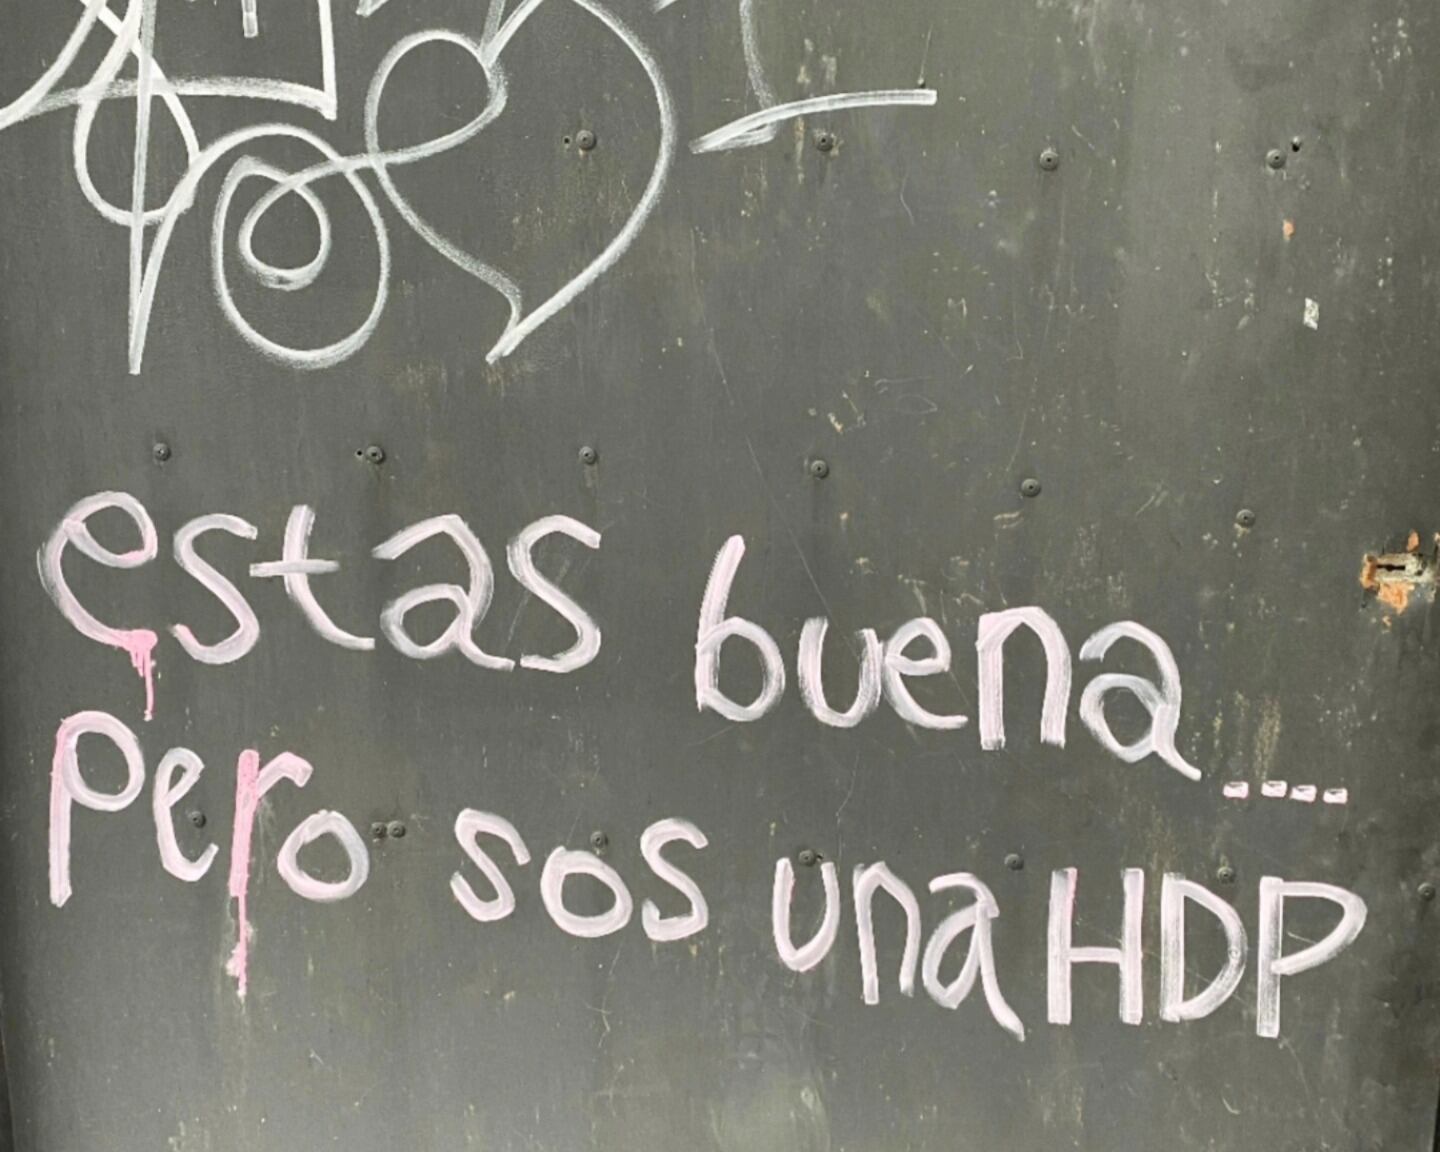 estas buena....
pero sos una HDP